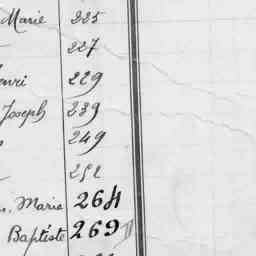 Marie 225
227
enri 229
Joseph 239
249
252
Maria 264
Baptiste 269 II